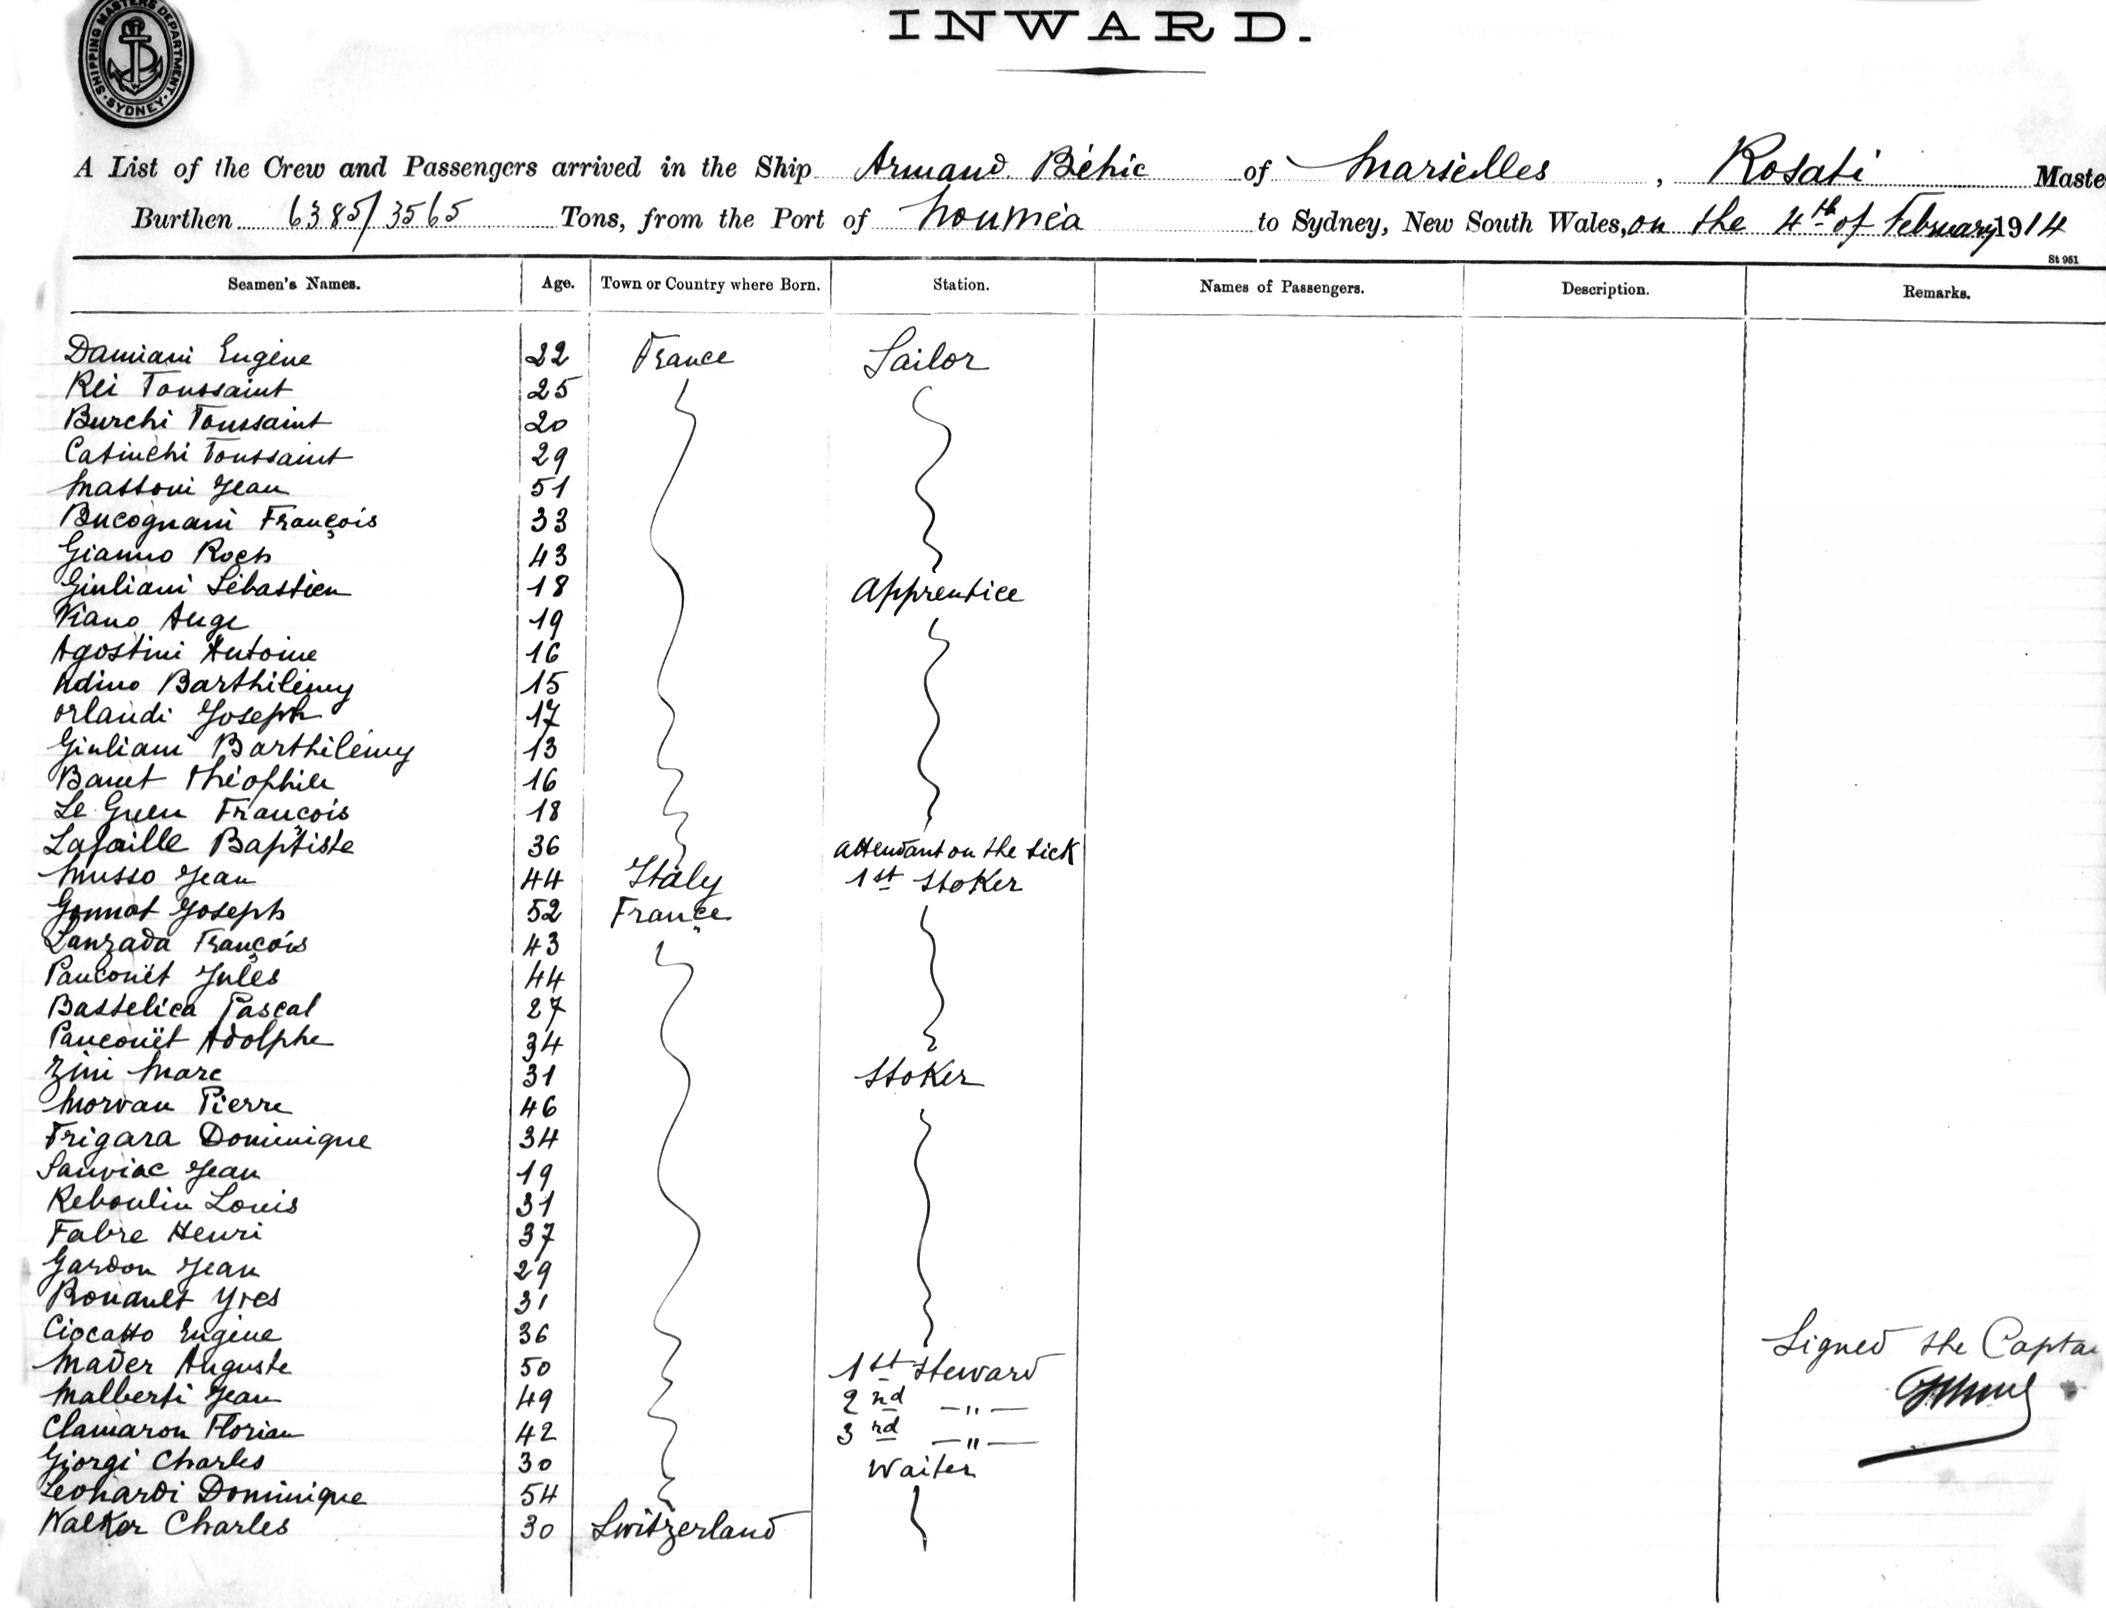 SHIPPING MASTERS DEPARTMENT
SYDNEY
INWARD.
A List of the Crew and Passengers arrived in the Ship Armand Béhic of Marseilles, Rosati Maste
Burthen 6385/3565 Tons, from the Port of Nouméa to Sydney, New South Wales, on the 4th of February 1914
St 951
Seamen's Names. Age. Town or Country where Born. Station. Names of Passengers. Description. Remarks.
Damiani Eugène 22 France Sailor
Rei Toussaint 25
Burchi Toussaint 20
Catinchi Toussaint 29
Massoni Jean 51
Bucognani François 33
Gianno Roch 43
Giuliani Sébastien 18 Apprentice
Viano Ange 19
Agostini Antoine 16
Adino Barthilémy 15
Orlandi Joseph 17
Giuliani Barthilémy 13
Banet Théophile 16
Le Guen François 18
Lafaille Baptiste 36 attendant on the sick
Musso Jean 44 Italy 1st Stoker
Gonnot Joseph 52 France
Lanzada François 43
Pancouët Jules 44
Bastelica Pascal 27
Pancouët Adolphe 34
Zini Marc 31 Stoker
Morvan Pierre 46
Frigara Dominique 34
Sauviac Jean 19
Reboulin Louis 31
Fabre Henri 37
Gardon Jean 29
Rouault Yves 31
Ciocatto Eugène 36 Signed the Captai
Mader Auguste 50 1st Steward
Malberti Jean 49 2nd —"—
Clamaron Florian 42 3rd —"—
Giorgi Charles 30 Waiter
Leonardi Dominique 54
Walker Charles 30 Switzerland